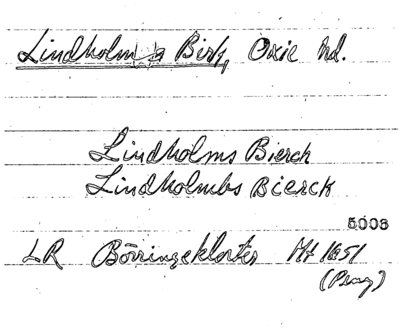 Lindholms Birk, Oxie hd.
Lindholms Bierck
Lindholmbs Bierck
5003
LR Börringekloster Ht 1651